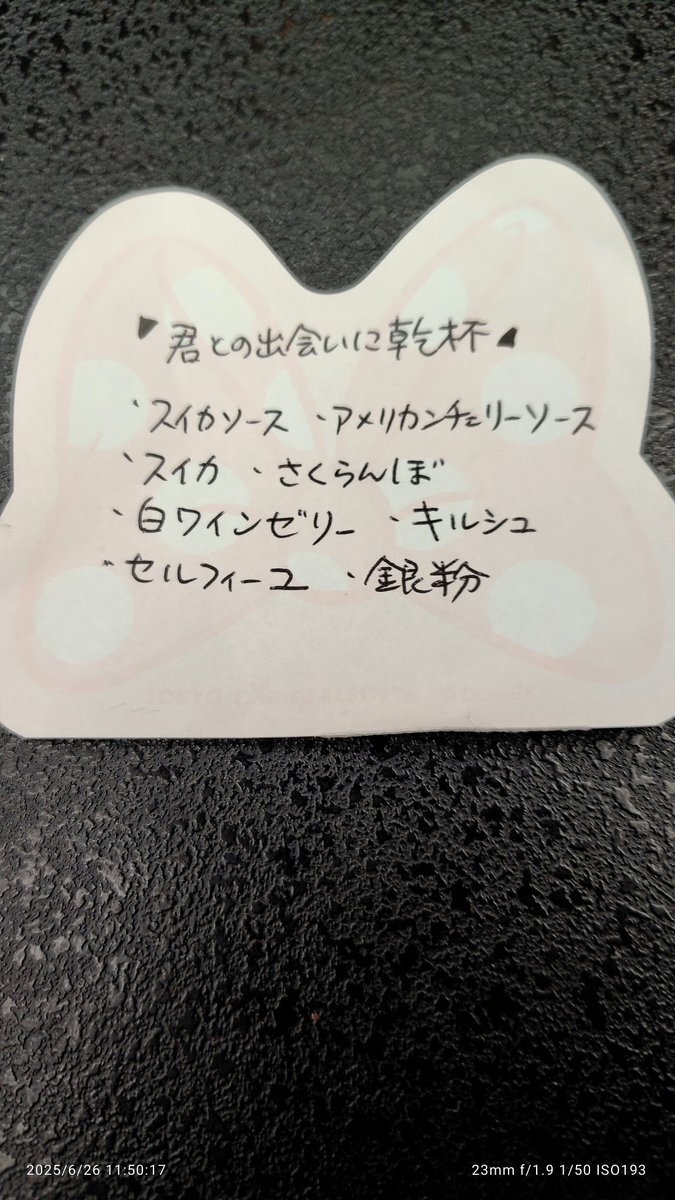 ▼君との出会いに乾杯▲
・スイカソース ・アメリカンチェリーソース
・スイカ ・さくらんぼ
・白ワインゼリー ・キルシュ
・セルフィーユ ・銀粉
2025/6/26 11:50:17 23mm f/1.9 1/50 ISO193